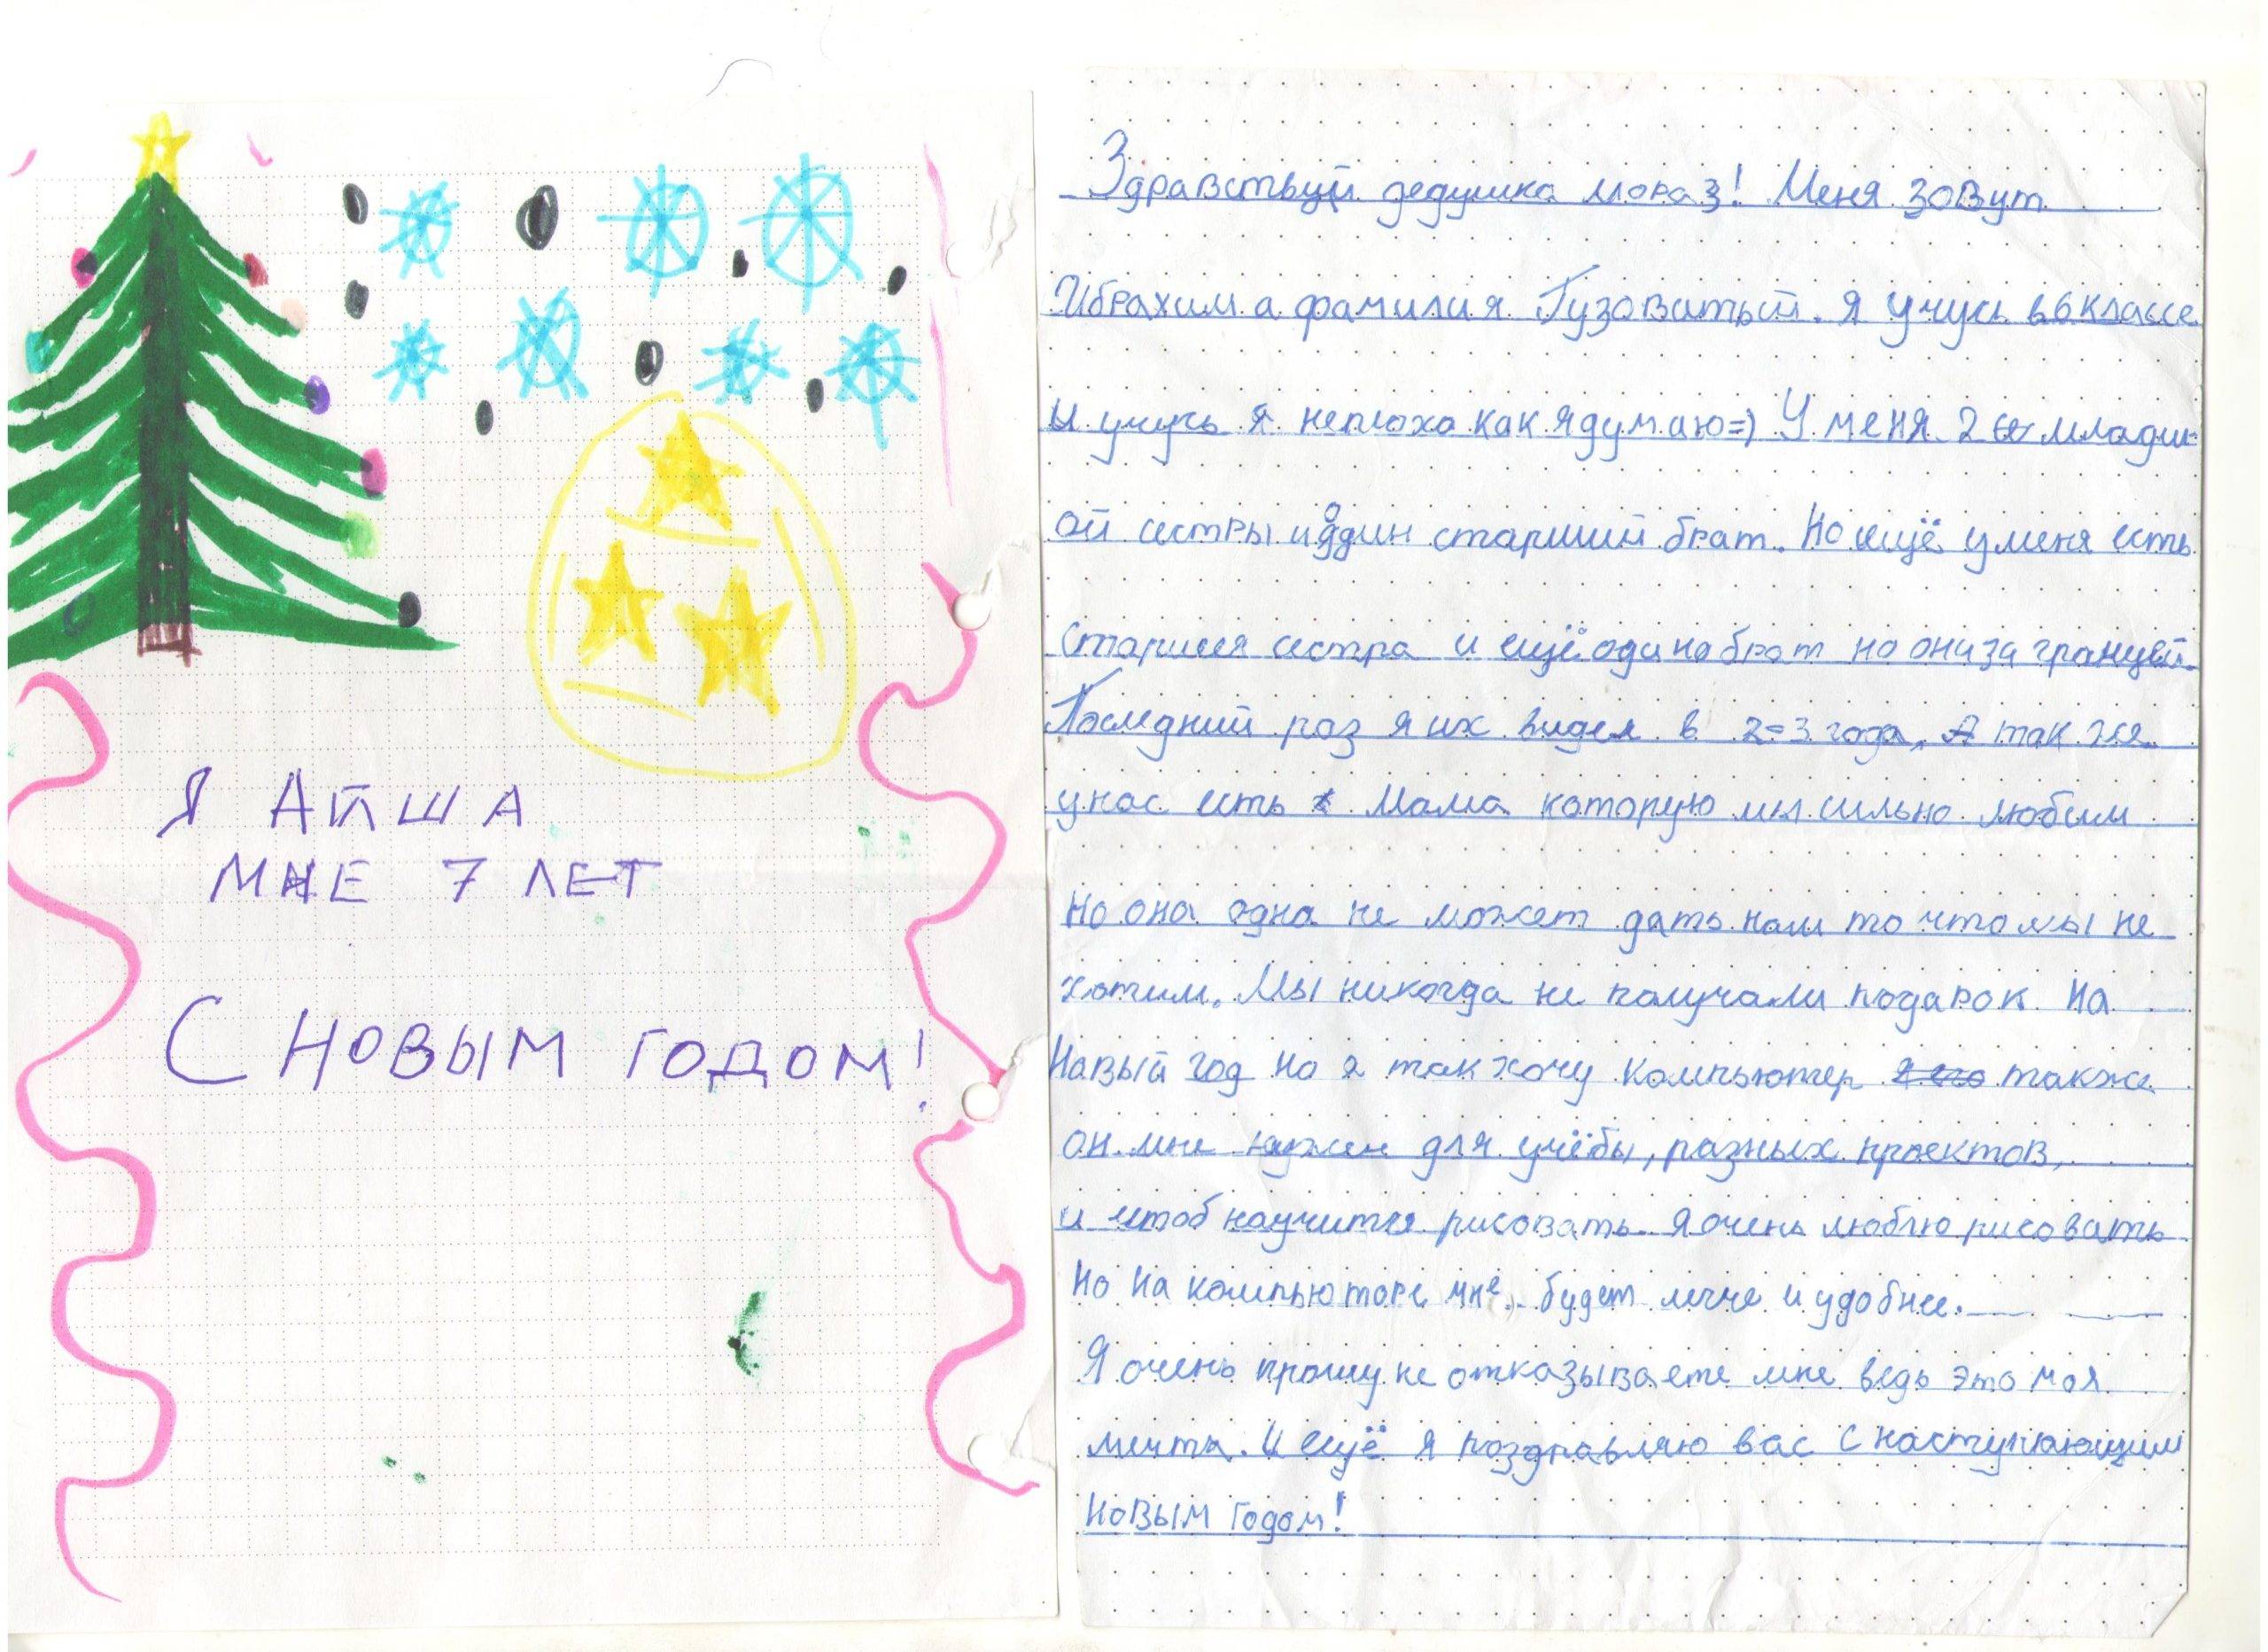 Я АЙША
МНЕ 7 ЛЕТ
С НОВЫМ ГОДОМ!
Здравствуй дедушка мораз! Меня зовут
Ибрахим а фамилия Гузоватый. Я учусь в 6 классе
и учусь я неплохо как я думаю=) У меня 2 младш
ой сестры и один старший брат. Но ещё у меня есть
старшея сестра и ещё один брат но они за границей.
Последний раз я их видел в 2-3 года, А так же
у нас есть Мама которую мы сильно любим
но она одна не может дать нам то что мы не
хотим. Мы никогда не получали подарок на
Навый год но я так хочу компьютер также
он мне нужен для учёбы, разных проектов,
и чтоб научится рисовать. Я очень люблю рисовать
но на компьюторе мне будет легче и удобнее.
Я очень прошу не отказываете мне ведь это моя
мечта. И ещё я поздравляю вас с наступающим
новым годом!